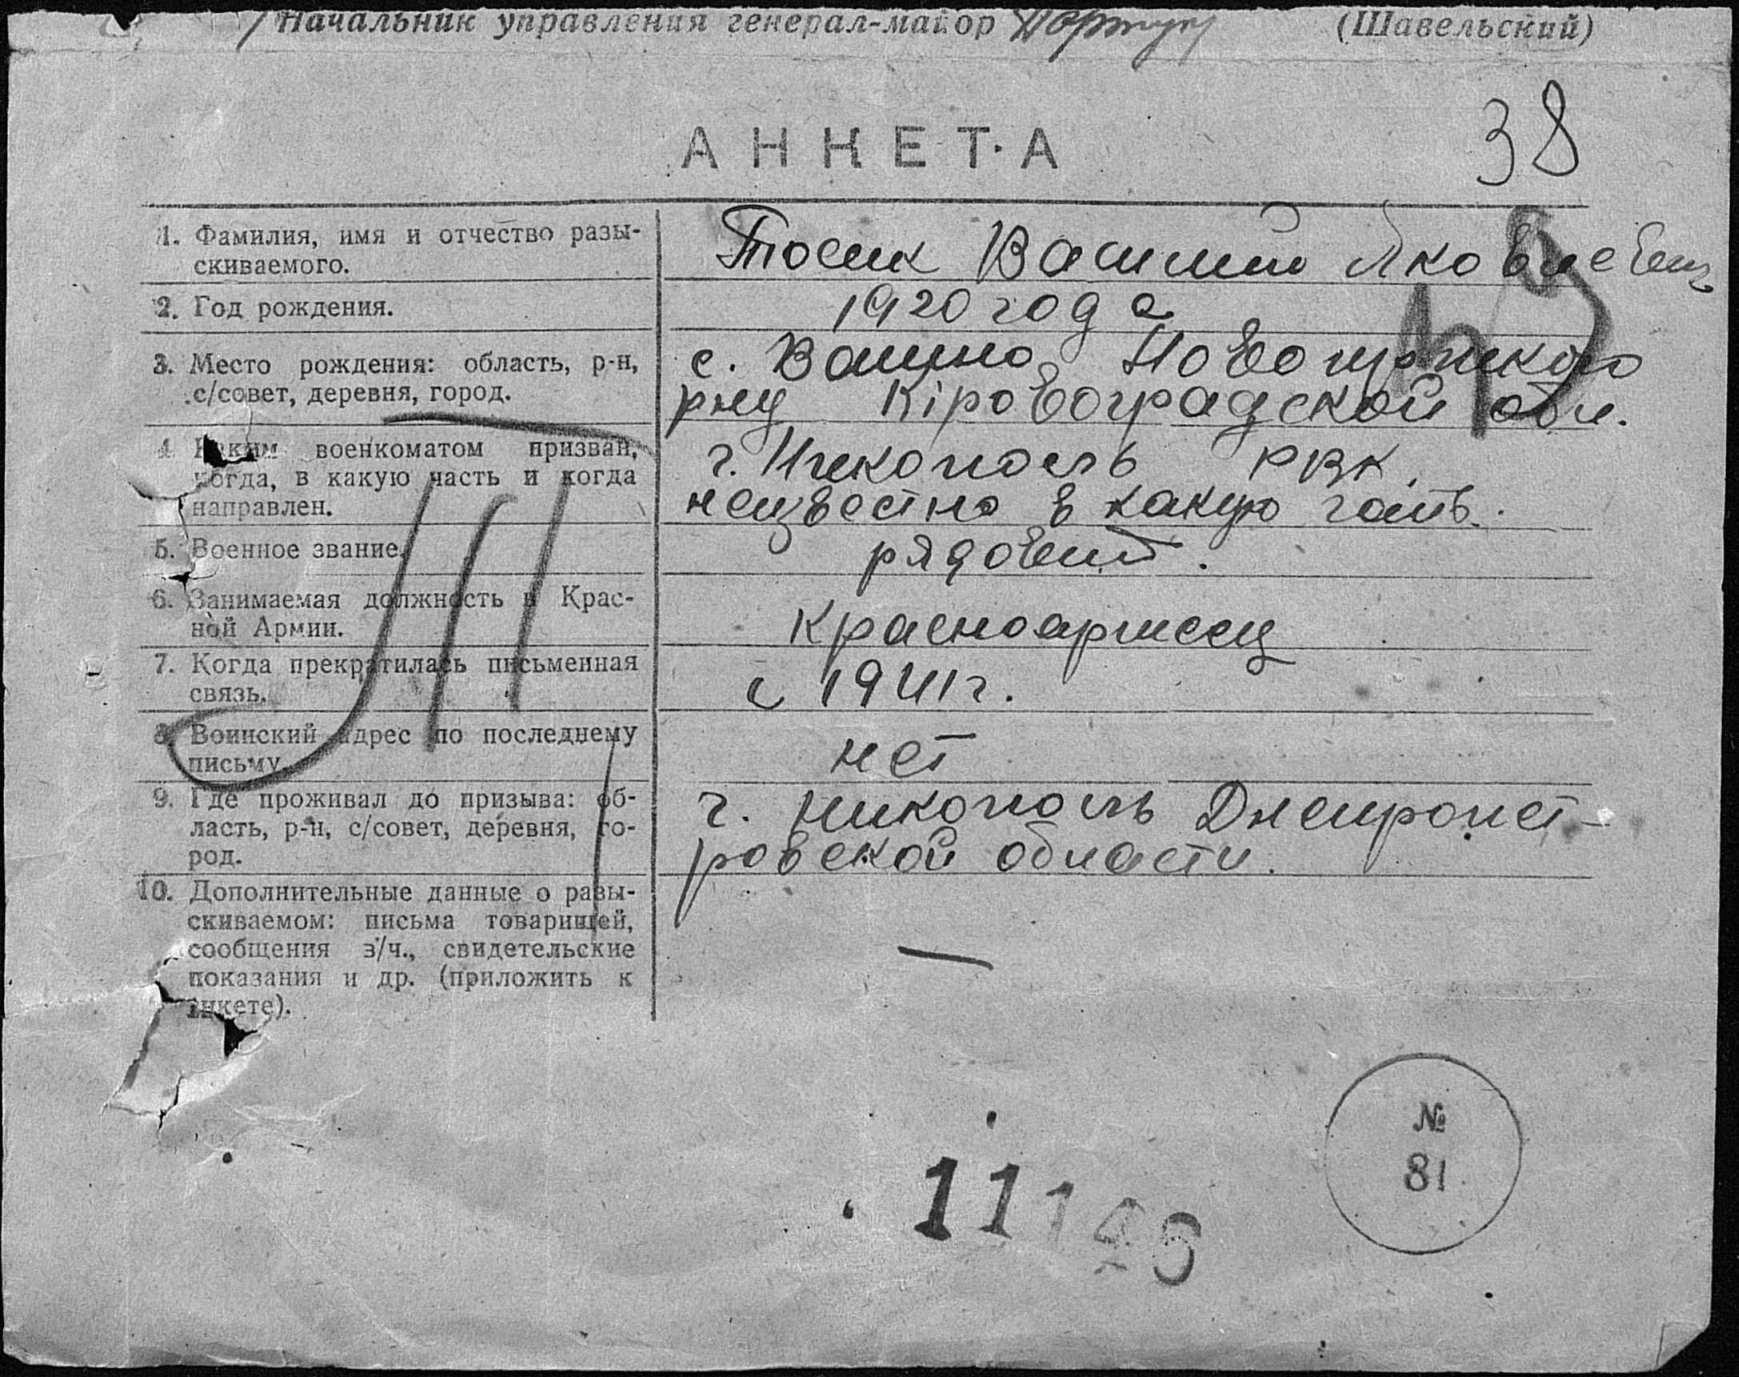 Начальник управления генерал-майор (Шавельский)
38
АНКЕТА
1. Фамилия, имя и отчество разы-
скиваемого.
Тосик Василий Яковлевич
2. Год рождения.
1920 года
3. Место рождения: область, р-н,
с/совет, деревня, город.
с.
рну Кіровоградской обл.
4. Каким военкоматом призван,
когда, в какую часть и когда
направлен.
г. Никополь РВК.
неизвестно в какую часть.
5. Военное звание.
рядовий.
6. Занимаемая должность в Крас-
ной Армии.
Красноармеец
7. Когда прекратилась письменная
связь.
с 1941 г.
8. Воинский адрес по последнему
письму.
нет
9. Где проживал до призыва: об-
ласть, р-н, с/совет, деревня, го-
род.
г. Никополь Днепропет-
ровской области.
10. Дополнительные данные о разы-
скиваемом: письма товарищей,
сообщения з/ч., свидетельские
показания и др. (приложить к
анкете).
—
№
81
11146